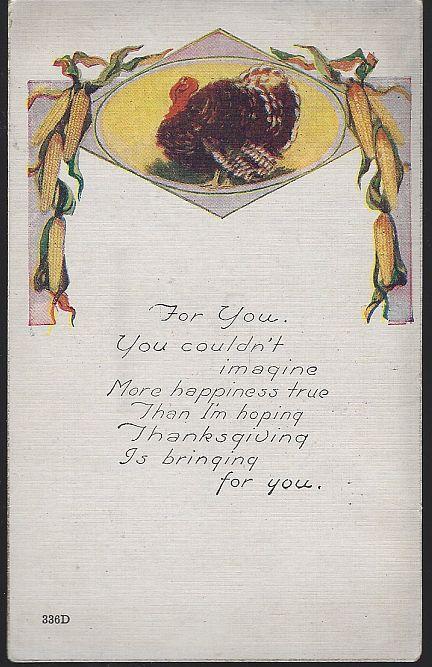 For You.
You couldn't
imagine
More happiness true
Than I'm hoping
Thanksgiving
Is bringing
for you.
336D